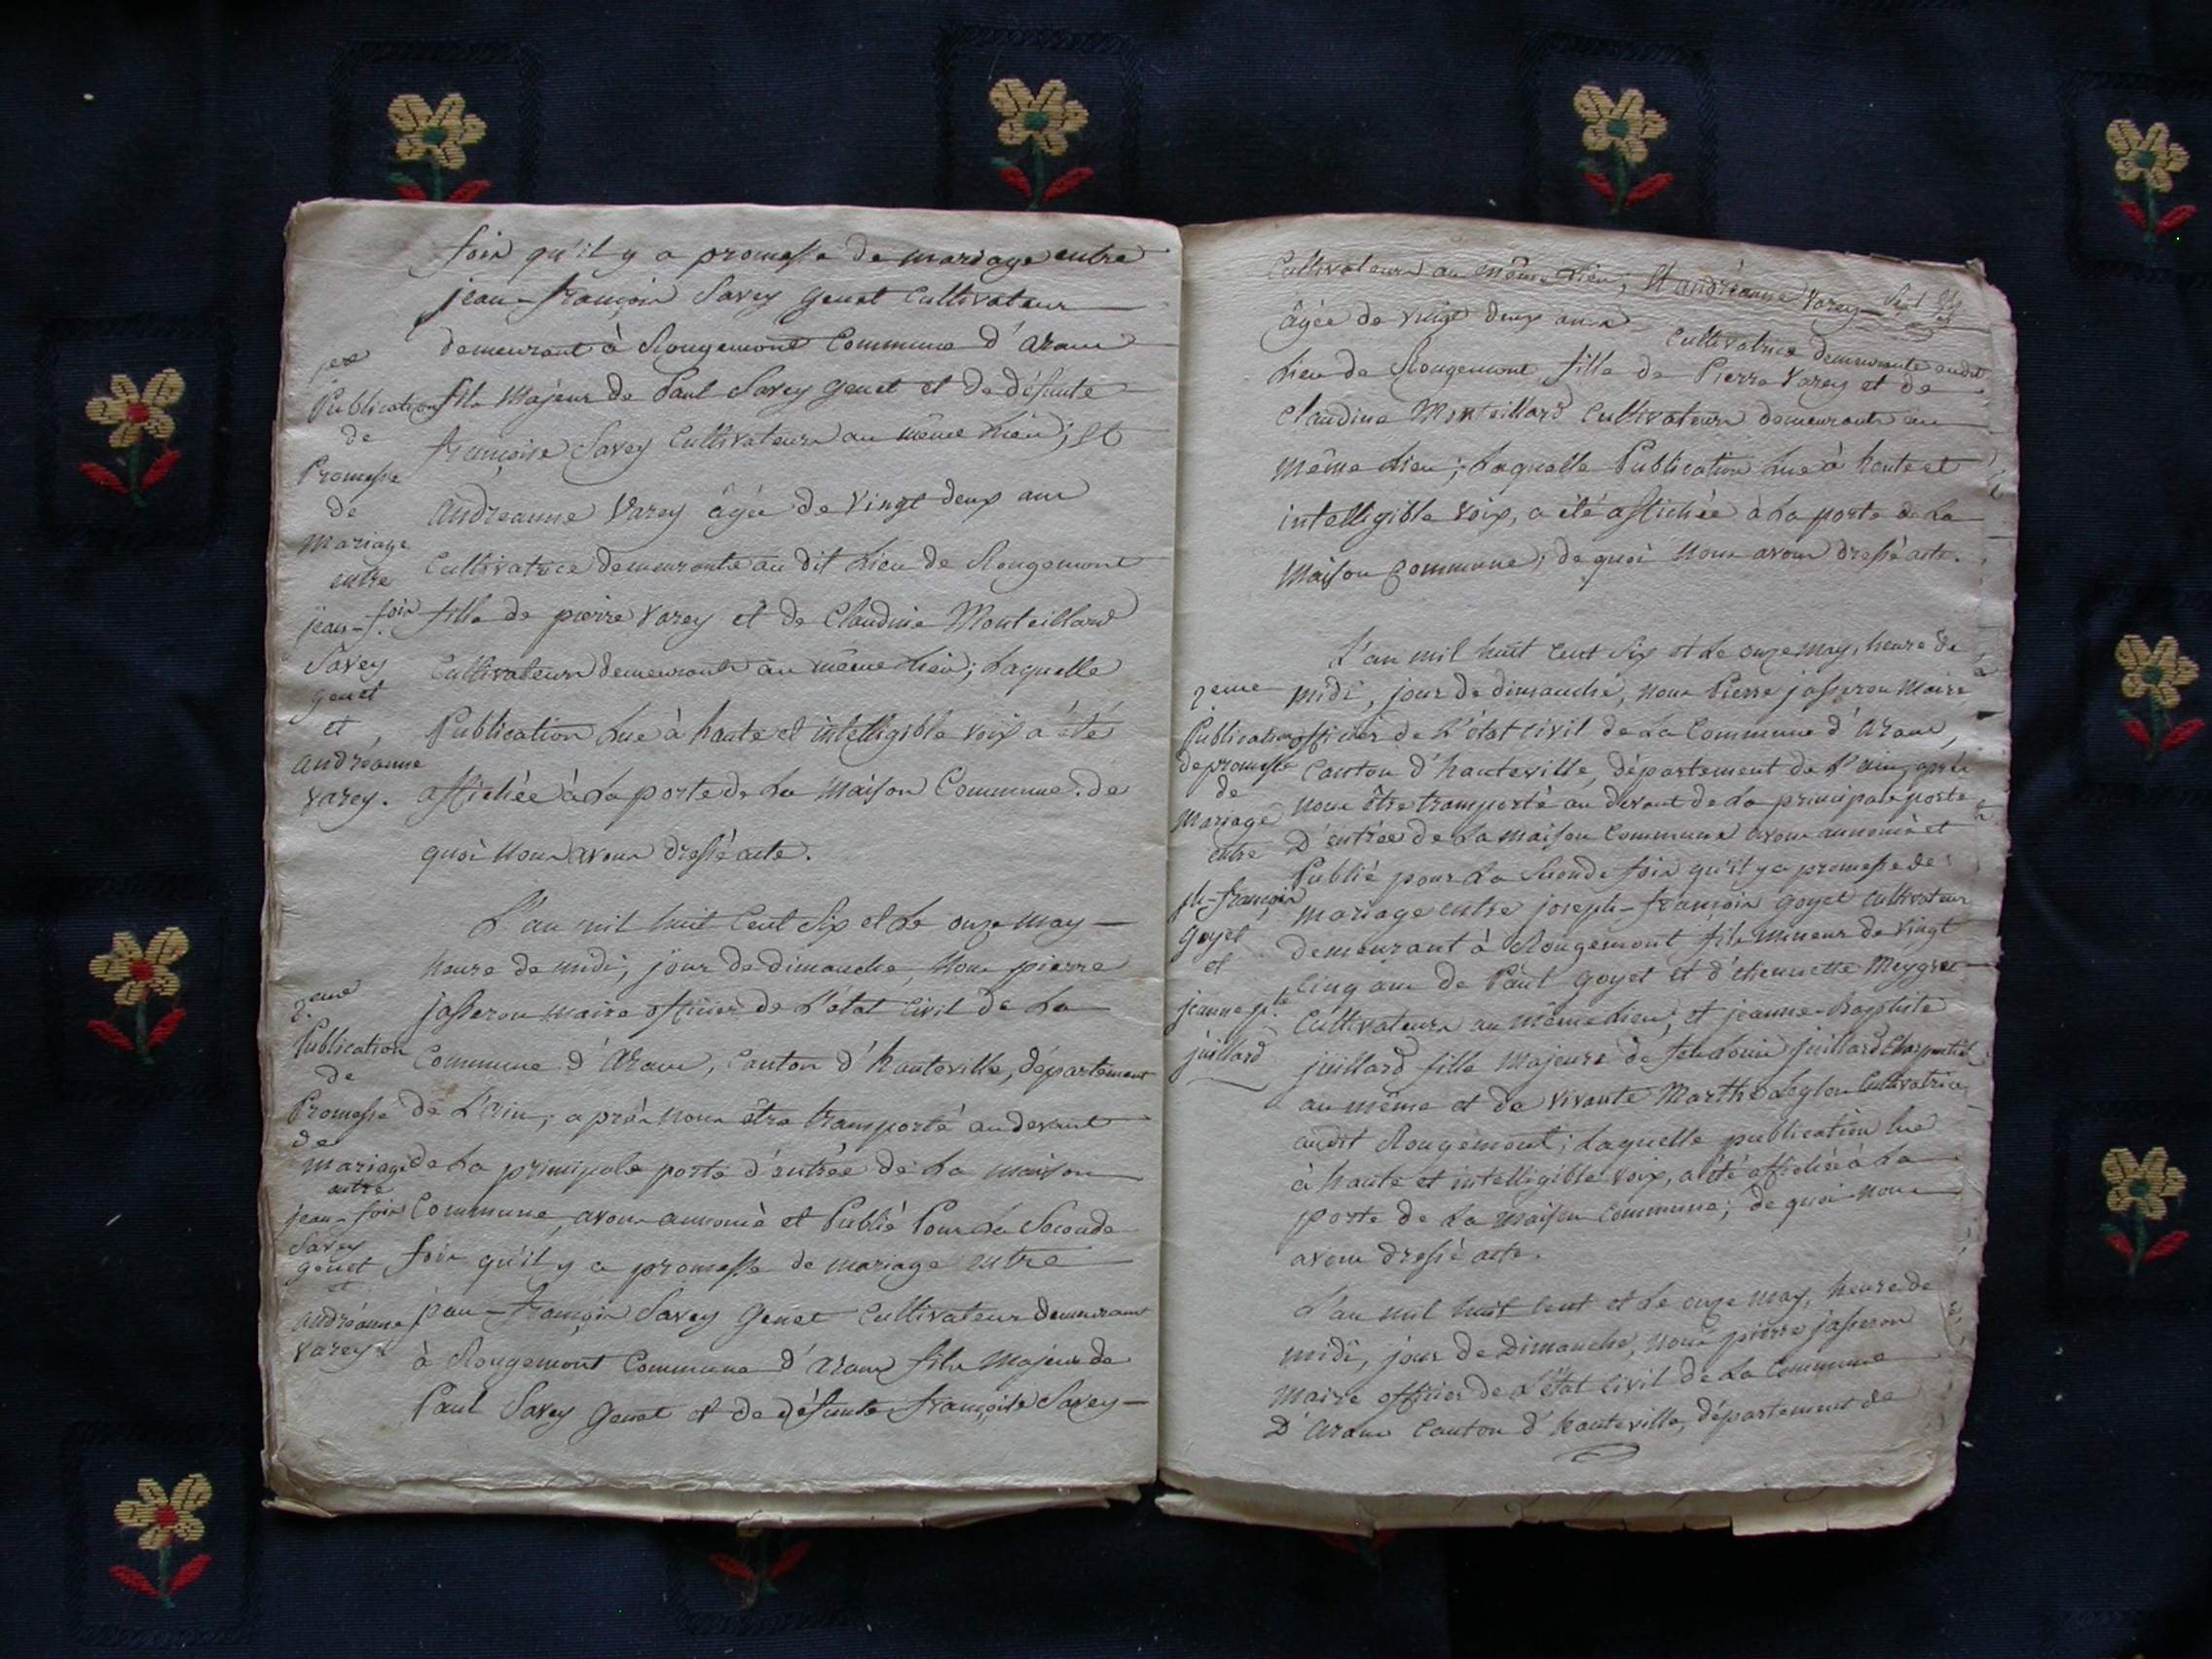 fois qu'il y a promesse de mariage entre
jean-françois Savey genet Cultivateur
demeurant à Rougemont Commune d'aranc
fils Majeur de Paul Savey genet et de défunte
françoise Savey Cultivateurs au même Lieu; Et
andréanne Varey âgée de Vingt deux ans
Cultivatrice demeurante au dit Lieu de Rougemont
fille de pierre Varey et de Claudine Monteillard
Cultivateurs demeurants au même Lieu; Laquelle
Publication Lue à haute et intelligible voix a été
affichée à La porte de La Maison Commune. de
quoi Nous avons dressé acte.
1ere
Publication
de
Promesse
de
Mariage
entre
jean-fois
Savey
genet
et
andréanne
Varey.
L'an mil huit Cent Six et Le onze may
heure de midi, jour de dimanche, Nous pierre
jasseron maire officier de L'état Civil de La
Commune d'Aranc, Canton d'hauteville, département
de L'Ain; après nous être transporté audevant
de La principale porte d'entrée de La maison
Commune, avons annoncé et Publié Pour La Seconde
fois qu'il y a promesse de mariage entre
jean-françois Savey Genet Cultivateur demeurant
à Rougemont Commune d'aranc fils Majeur de
Paul Savey Genet et de défunte françoise Savey
2eme
Publication
de
Promesse
de
mariage
entre
jean-fois
Savey
genet
et
andréanne
Varey
Cultivateurs au même Lieu; Et andréanne Varey
âgée de vingt deux ans Cultivatrice demeurante audit
Lieu de Rougemont fille de Pierre Varey et de
Claudine Monteillard Cultivateurs demeurants au
même Lieu; Laquelle Publication Lue à haute et
intelligible Voix, a été affichée à La porte de La
Maison Commune; de quoi Nous avons dressé acte.
L'an mil huit Cent Six et Le onze may, heure de
midi, jour de dimanche, nous Pierre jasseron Maire
officier de L'état Civil de La Commune d'Aranc,
Canton d'hauteville, département de L'ain, après
nous être transporté au devant de La principale porte
D'entrée de La maison Commune avons annoncé et
Publié pour La Seconde fois qu'il y a promesse de
mariage entre joseph-françois goyet Cultivateur
demeurant à Rougemont fils mineur de vingt
Cinq ans de Paul goyet et d'etiennette Meygret
Cultivateurs au même Lieu; et jeanne-Baptiste
juillard fille Majeure de feu Louis juillard Charpentier
au même et de vivante Marthe Cultivatrice
audit Rougemont; Laquelle publication Lue
à haute et intelligible Voix, a été affichée à La
porte de La Maison Commune; de quoi nous
avons dressé acte.
2eme
Publication
de promesse
de
Mariage
entre
jh-françois
Goyet
et
jeanne bte
juillard
L'an mil huit Cent et Le onze may, heure de
midi, jour de Dimanche, nous pierre jasseron
Maire officier de L'état Civil de La Commune
D'Aranc Canton d'hauteville, département de